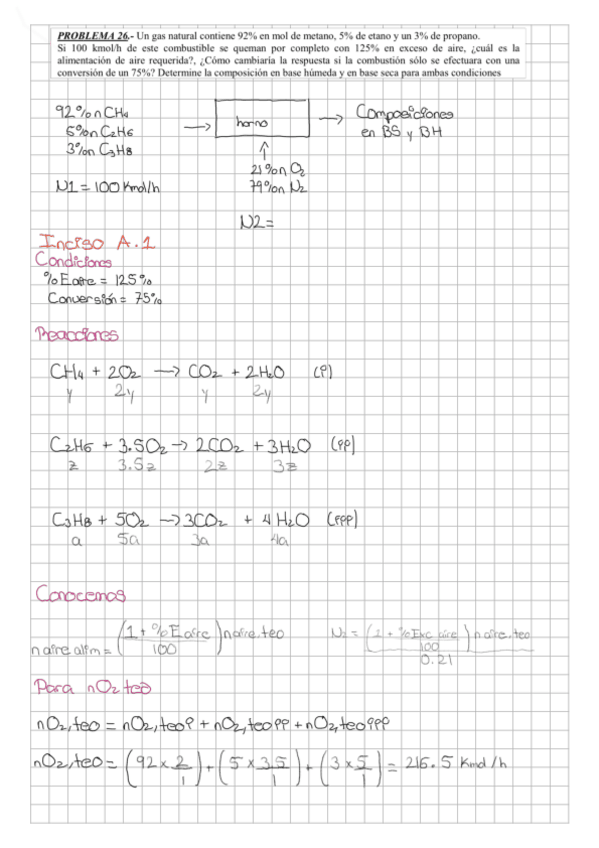 PROBLEMA 26.- Un gas natural contiene 92% en mol de metano, 5% de etano y un 3% de propano.
Si 100 kmol/h de este combustible se queman por completo con 125% en exceso de aire, ¿cuál es la
alimentación de aire requerida?, ¿Cómo cambiaría la respuesta si la combustión sólo se efectuara con una
conversión de un 75%? Determine la composición en base húmeda y en base seca para ambas condiciones
92%n CH4
5%n C2H6
3%n C3H8
horno
Composiciones
en BS y BH
21%n O2
79%n N2
N1 = 100 Kmol/h
N2=
Inciso A.1
Condiciones
%Eaire = 125%
Conversión = 75%
Reacciones
CH4 + 2O2 → CO2 + 2H2O (P)
y 2y y 2y
C2H6 + 3.5O2 → 2CO2 + 3H2O (PP)
z 3.5z 2z 3z
C3H8 + 5O2 → 3CO2 + 4H2O (PPP)
a 5a 3a 4a
Conocemos
n aire alim = (1 + %Eaire/100) n aire.teo
N2 = (1 + %Exc aire/100) n aire.teo / 0.21
Para nO2 teo
nO2,teo = nO2,teoP + nO2,teoPP + nO2,teoPPP
nO2,teo = (92 x 2/1) + (5 x 3.5/1) + (3 x 5/1) = 216.5 Kmol/h